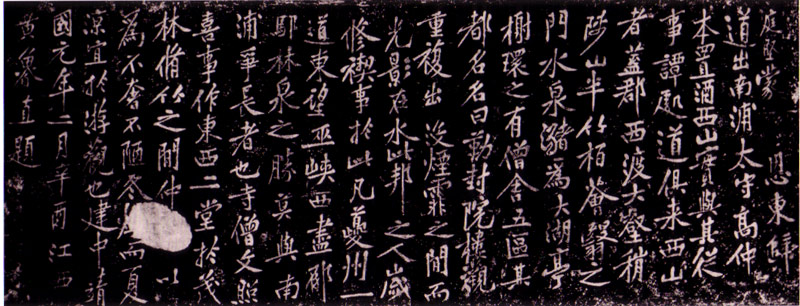 庭堅蒙 恩東歸
道出南浦太守高仲
本置酒西山實與其從
事譚處道俱来西山
者蓋郡西渡大壑稍
陟山半竹柏薈翳之
門水泉瀦為大湖亭
榭環之有僧舍五區其
都名名曰勒封院樓觀
重複出沒煙霏之間而
光影在水此邦之人歲
修禊事於此凡夔州一
道東望巫峽西盡郁
鄢林泉之勝莫與南
浦爭長者也寺僧文照
喜事作東西二堂於茂
林脩竹之間仲以
為不奢不陋冬而夏
涼宜於游觀也建中靖
國元年二月辛酉江西
黃魯直題